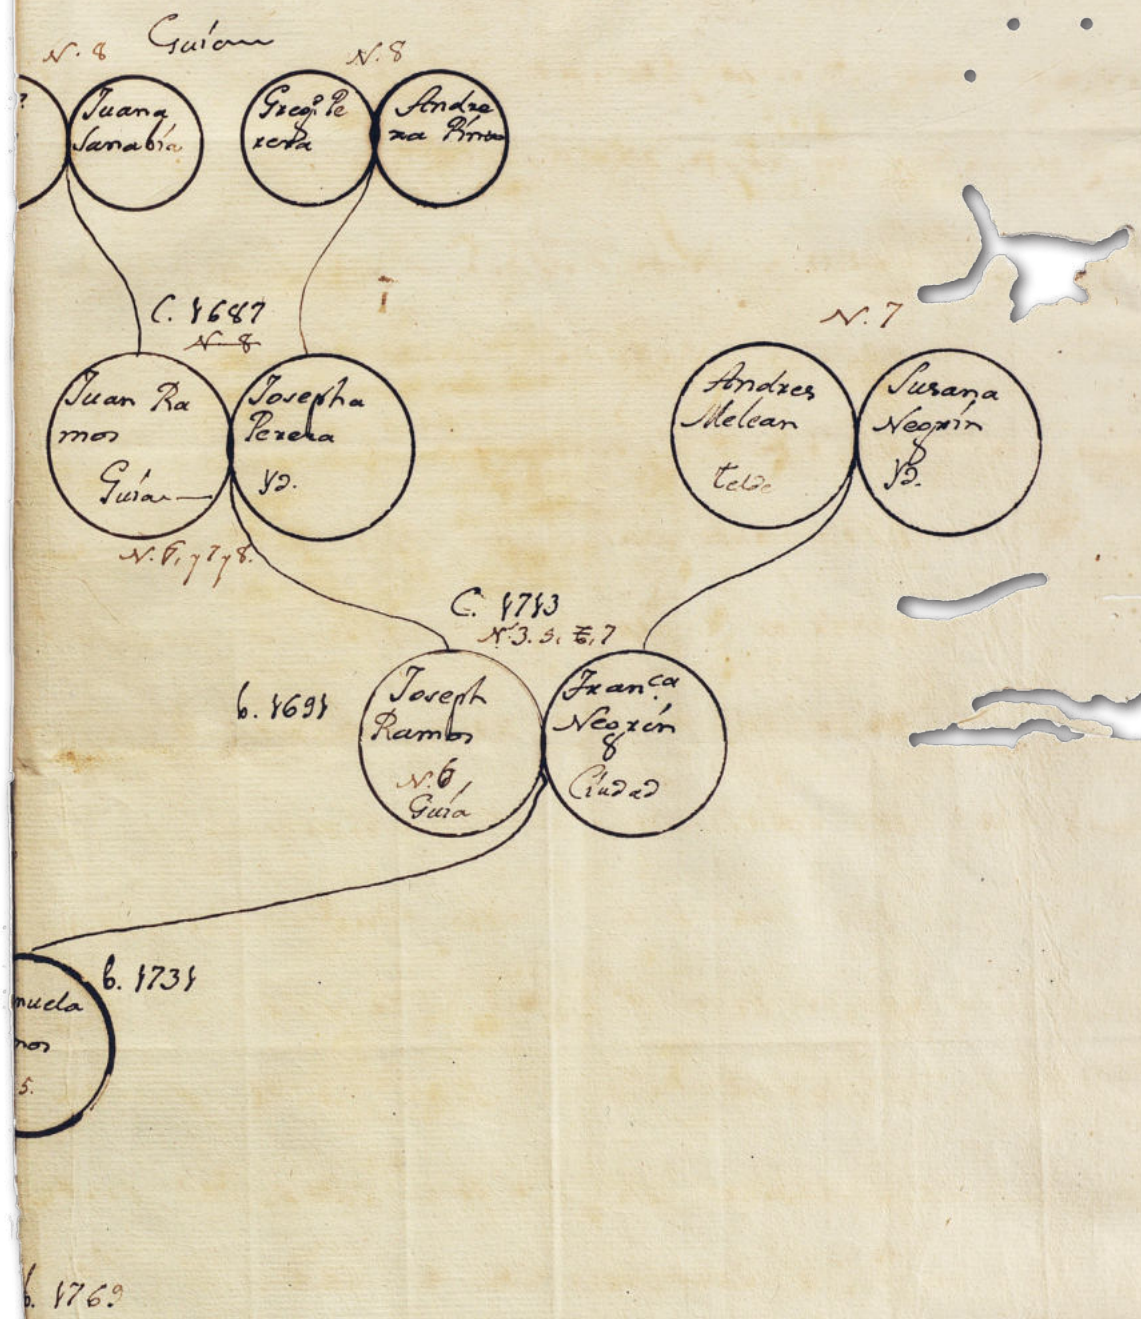 Guía
N. 8
N. 8
Juana
Sanabria
Greg.º Pe
rera
Andre
na
C. 1687
N. 8
N. 7
Juan Ra
mos
Guía
Josepha
Perera
Yd.
Andres
Melean
Telde
Susana
Negrín
Yd.
N. 6, y 7 y 8.
C. 1713
N. 3. 5, 6, 7
b. 1691
Joseph
Ramos
N. 6,
Guía
Fran.ca
Negrín
8
Ciudad
b. 1731
nuela
mos
5.
b. 1769